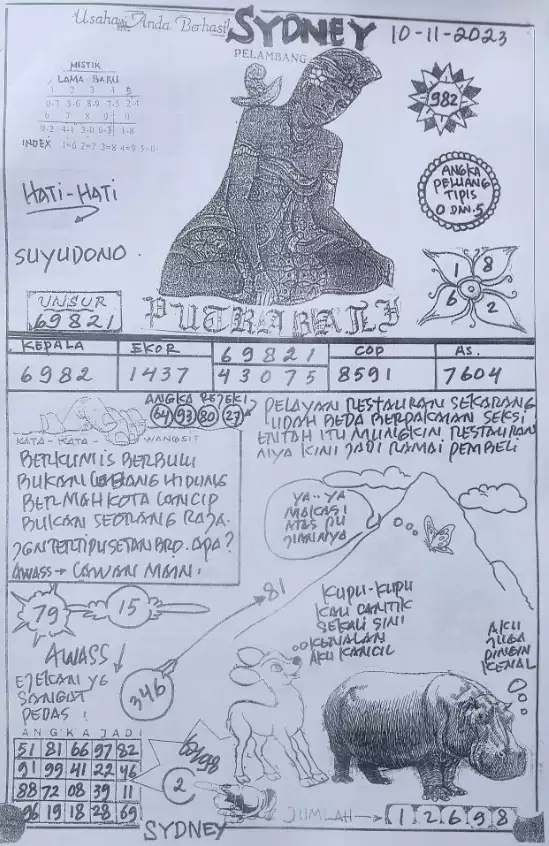 Usaha Anda Berhasil
SYDNEY
10-11-2023
PELAMBANG
MISTIK
LAMA BARU
1 2 3 4 5
0-7 5-6 8-9 7-5 2-4
6 7 8 9 0
9-2 4-1 3-0 6-3 1-8
INDEX 1=6 2=7 3=8 4=9 5=0
982
HATI-HATI
ANGKA
PELUANG
TIPIS
0 DAN 5
SUYUDONO
1 8
6 2
UNSUR
69821
PUTRA BALI
KEPALA EKOR 69821 COP AS.
6982 1437 43075 8591 7604
ANGKA REJEKI
64 93 80 27
PELAYAN RESTAURAN SEKARANG
UDAH BEDA BERPAKAIAN SEKSI
ENTAH ITU MUNGKIN RESTAURAN
NYA KINI JADI RAMAI PEMBELI
KATA - KATA - WANGSIT
BERKUMIS BERBULU
BUKAN LOBANG HIDUNG
BERMAHKOTA LANCIP
BUKAN SEORANG RAJA.
JGN TERTIPU SETAN BRO. APA?
AWASS → LAWAN MAIN.
YA..YA
MAKASI
MAS PU
JIANNYA
81
79
15
KUPU-KUPU
KAU CANTIK
SEKALI SINI
KENALAN
AKU KANCIL
AKU
JUGA
PINGIN
KENAL
AWASS
EJEKAN YG
SANGAT
PEDAS!
346
ANGKA JADI
51 81 66 97 82
91 99 41 22 46
88 72 08 39 11
96 19 18 28 69
2
JUMLAH → 12698
SYDNEY